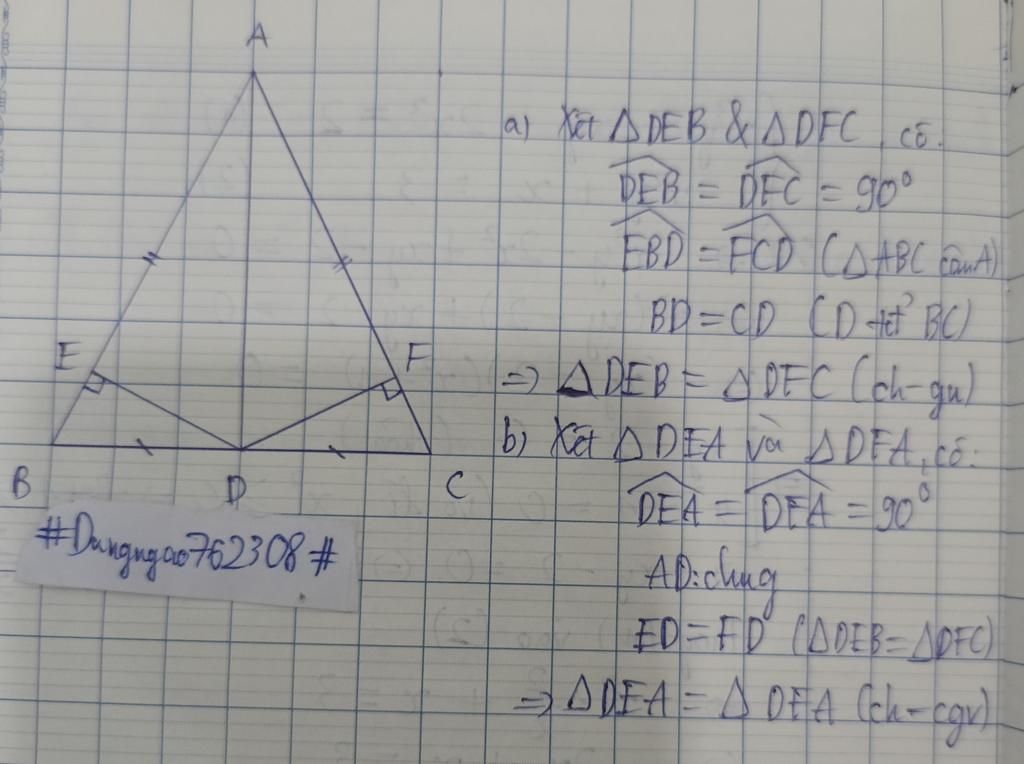 A
E
F
B
D
C
#Dungngao762308#
a) Xét ΔDEB & ΔDFC, có:
DEB = DFC = 90°
EBD = FCD (ΔABC cân A)
BD = CD (D tđ BC)
=> ΔDEB = ΔDFC (ch-gn)
b) Xét ΔDEA và ΔDFA, có:
DEA = DFA = 90°
AD: chung
ED = FD (ΔDEB = ΔDFC)
=> ΔDEA = ΔDFA (ch-cgv)